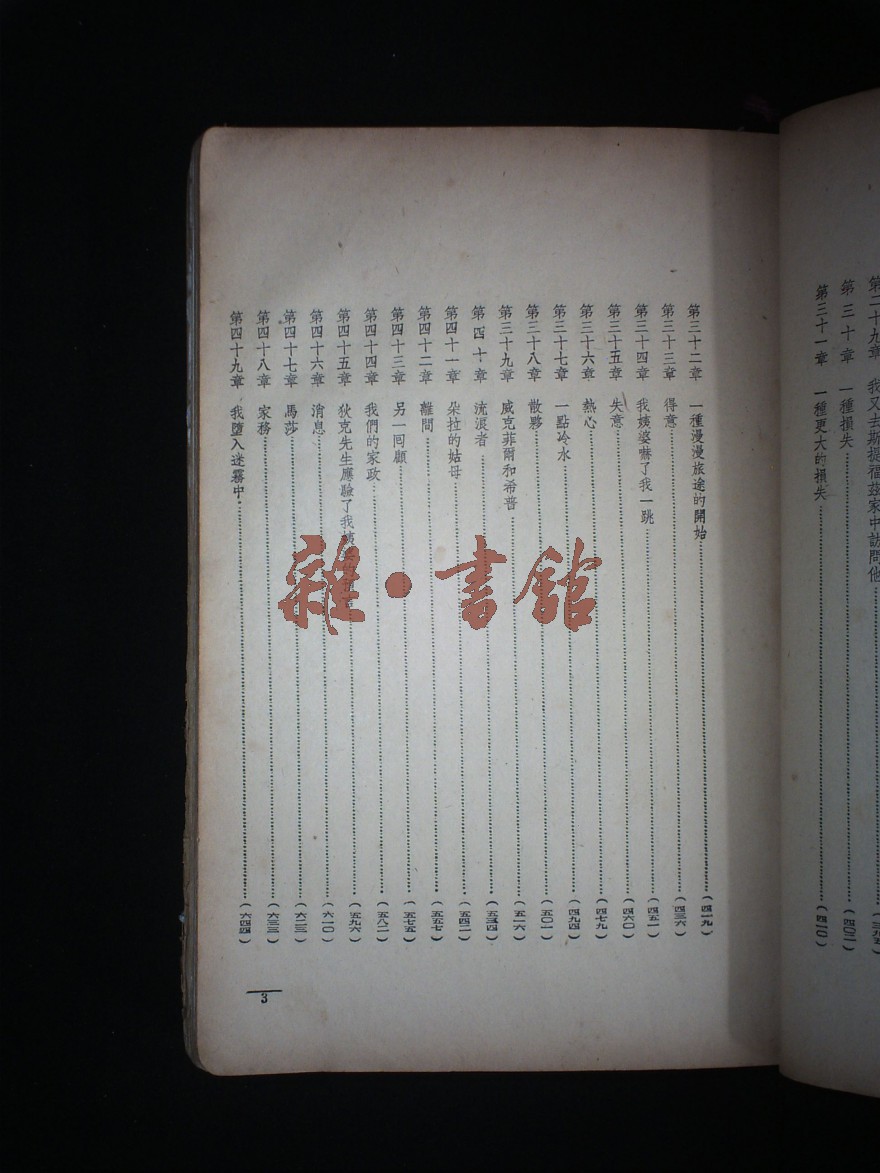 第二十九章 我又去斯提福兹家中訪問他
第三十章 一種損失……(四〇二)
第三十一章 一種更大的損失……(四一〇)
第三十二章 一種漫漫旅途的開始……(四一九)
第三十三章 得意……(四三六)
第三十四章 我姨婆嚇了我一跳……(四五一)
第三十五章 失意……(四六〇)
第三十六章 熱心……(四七九)
第三十七章 一點冷水……(四九四)
第三十八章 散夥……(五〇一)
第三十九章 威克菲爾和希普……(五一六)
第四十章 流浪者……(五三四)
第四十一章 朵拉的姑母……(五四二)
第四十二章 離間……(五五七)
第四十三章 另一囘顧……(五七五)
第四十四章 我們的家政……(五八二)
第四十五章 狄克先生應驗了我姨婆的……(五九六)
第四十六章 消息……(六一〇)
第四十七章 馬莎……(六二三)
第四十八章 家務……(六三三)
第四十九章 我墮入迷霧中……(六四四)
3
雜·書館